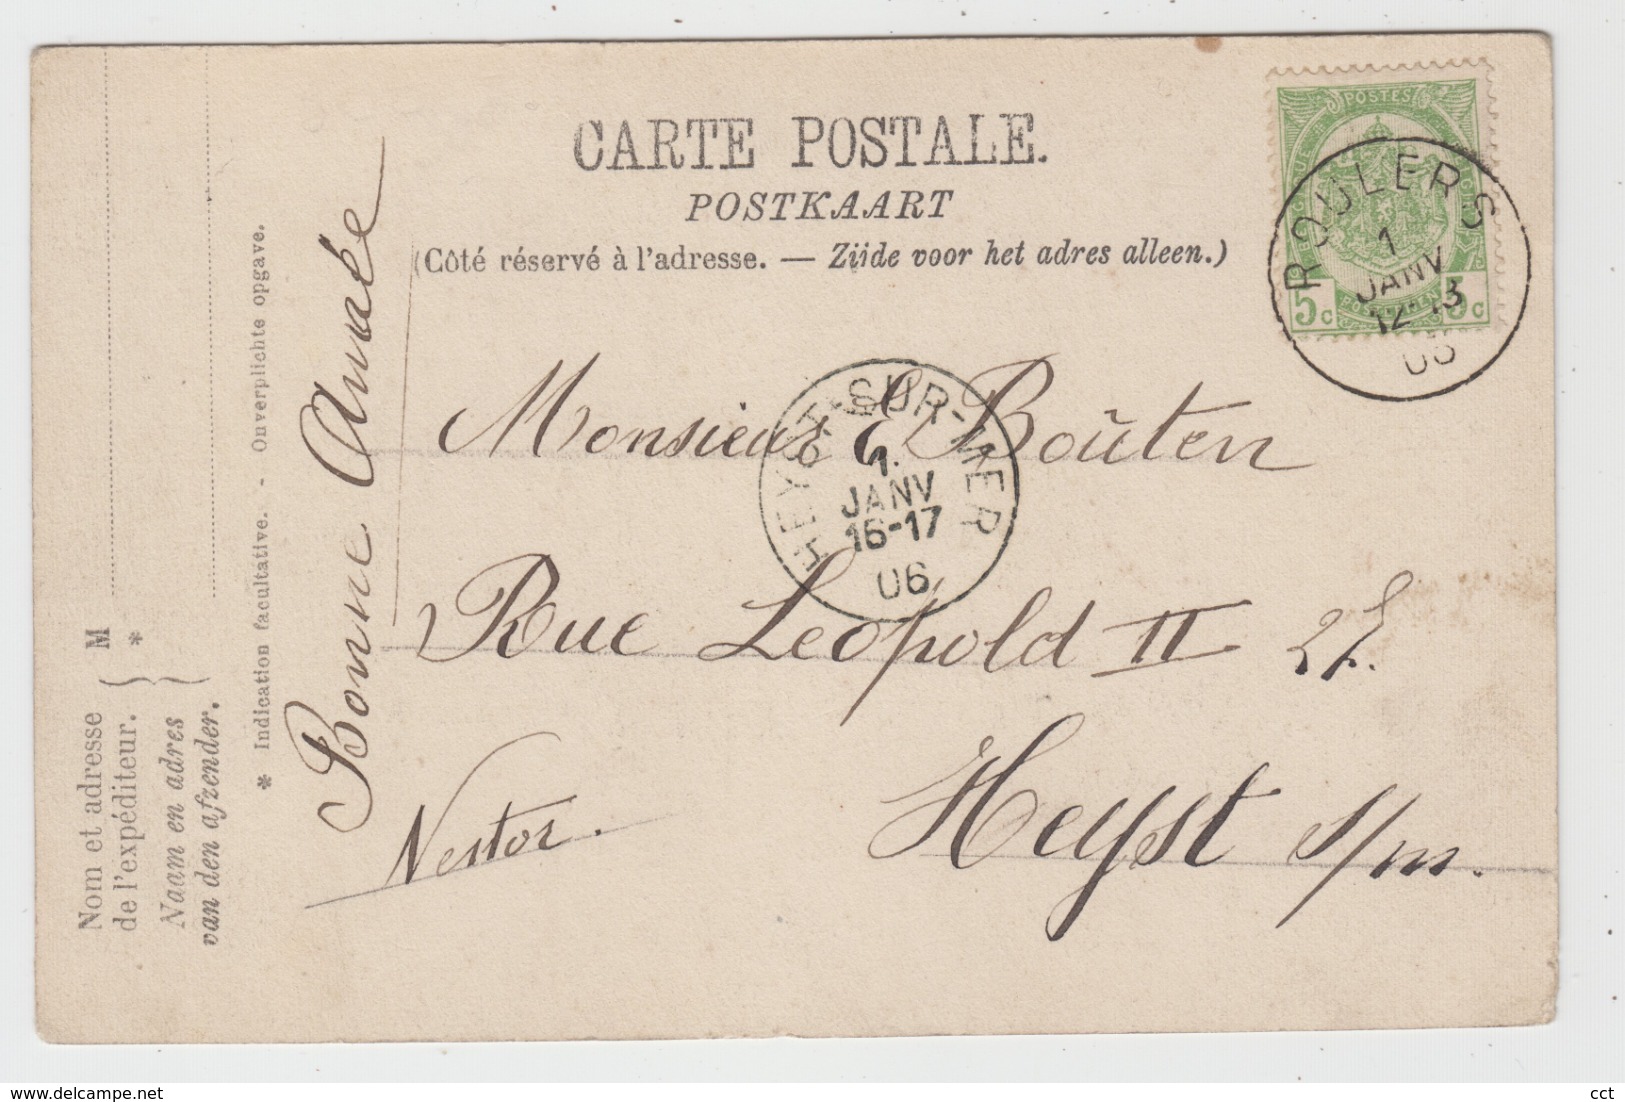 CARTE POSTALE.
POSTKAART
(Côté réservé à l'adresse. — Zijde voor het adres alleen.)
POSTES
5c 5c
ROULERS
1
JANV
12-13
06
HEYST-SUR-MER
1
JANV
16-17
06
Monsieur E Boûten
Rue Leopold II 27.
Heyst s/m.
Bonne Année
Nestor.
* Indication facultative. - Onverplichte opgave.
Nom et adresse
de l'expéditeur.
Naam en adres
van den afzender.
M
*
www.delcampe.net
cct